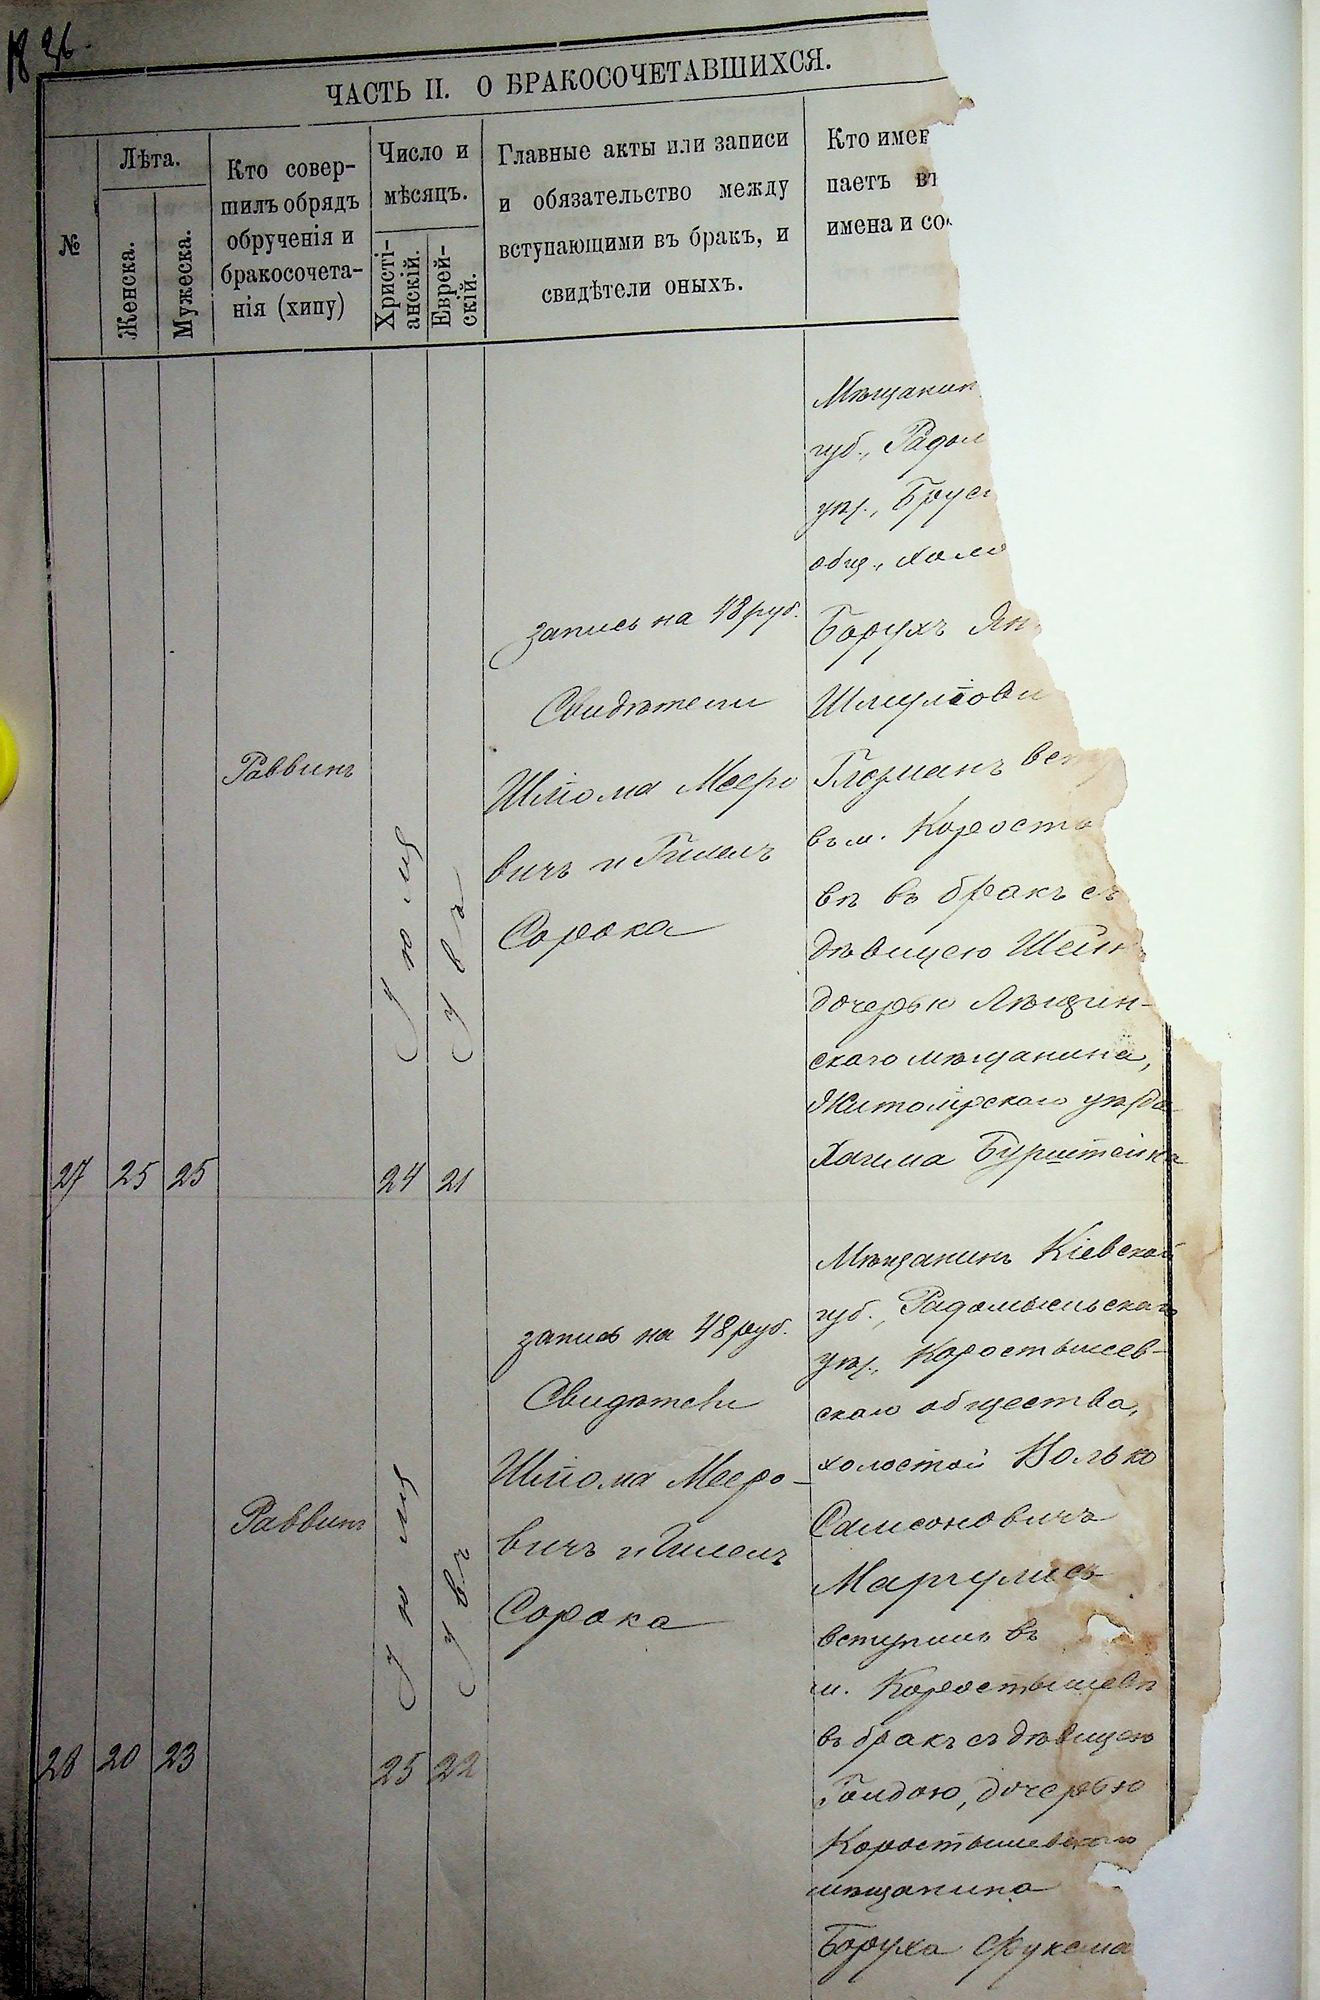 18 26.
ЧАСТЬ II. О БРАКОСОЧЕТАВШИХСЯ.
№
Лѣта.
Женска.
Мужеска.
Кто совер-
шилъ обрядъ
обрученія и
бракосочета-
нія (хипу)
Число и
мѣсяцъ.
Христі-
анскій.
Еврей-
скій.
Главные акты или записи
и обязательство между
вступающими въ бракъ, и
свидѣтели оныхъ.
Кто имен
паетъ въ
имена и сос
27
25
25
Раввинъ
Іюля
24
21
запись на 48 руб.
Свидѣтели
Шліома Мееро
вичъ и Гилелъ
Сорока
Мѣщанин
губ., Радом
уѣз., Брус
общ., холо
Борухъ Ян
Шмулiови
Глозманъ вст
въ м. Корост
вѣ въ бракъ съ
дѣвицею Шейн
дочерью Лѣщин-
скаго мѣщанина,
Житомірскаго уѣзда
Хаима Бурштейна
28
20
23
Раввинъ
Іюля
25
22
запись на 48 руб.
Свидѣтели
Шліома Мееро-
вичъ и Гилелъ
Сорока
Мѣщанинъ Кіевской
губ., Радомысльскаго
уѣз., Коростышев-
скаго общества,
холостой Волько
Самсоновичъ
Маргулисъ
вступилъ въ
м. Коростышевѣ
въ бракъ съ дѣвицею
Голдою, дочерью
Коростышевскаго
мѣщанина
Боруха Фуксма